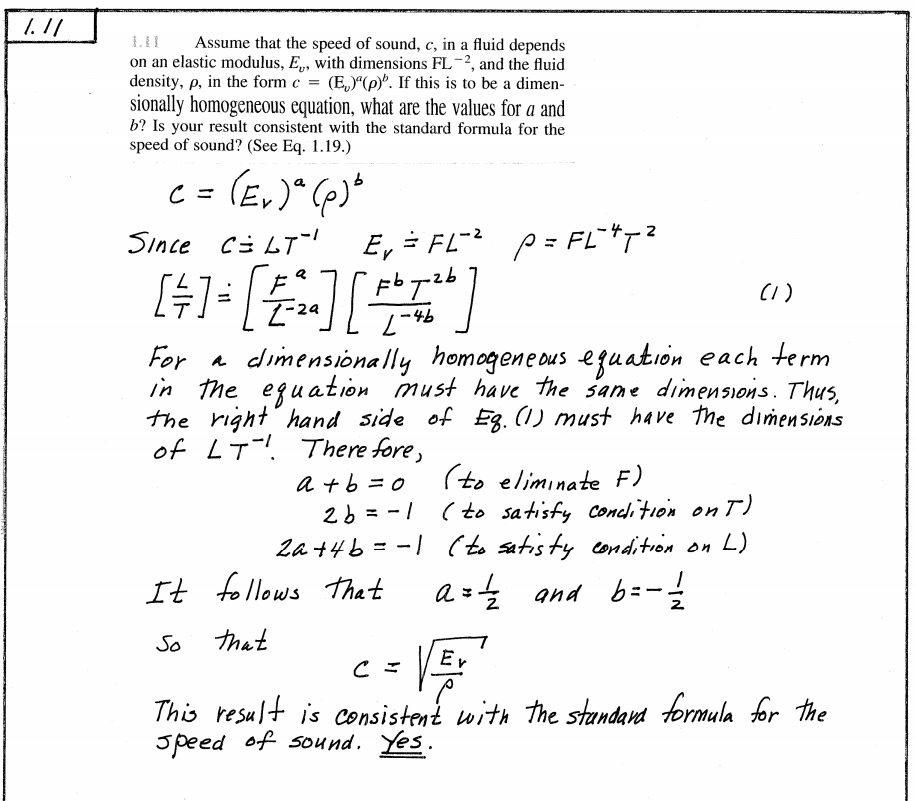 1.11
1.11 Assume that the speed of sound, c, in a fluid depends
on an elastic modulus, Eᵥ, with dimensions FL⁻², and the fluid
density, ρ, in the form c = (Eᵥ)ᵃ(ρ)ᵇ. If this is to be a dimen-
sionally homogeneous equation, what are the values for a and
b? Is your result consistent with the standard formula for the
speed of sound? (See Eq. 1.19.)
c = (Eᵥ)ᵃ (ρ)ᵇ
Since c ≐ LT⁻¹ Eᵥ ≐ FL⁻² ρ = FL⁻⁴T²
[L/T] ≐ [Fᵃ/L⁻²ᵃ] [FᵇT²ᵇ/L⁻⁴ᵇ] (1)
For a dimensionally homogeneous equation each term
in the equation must have the same dimensions. Thus,
the right hand side of Eq. (1) must have the dimensions
of LT⁻¹. Therefore,
a + b = 0 (to eliminate F)
2b = -1 (to satisfy condition on T)
2a + 4b = -1 (to satisfy condition on L)
It follows that a = 1/2 and b = -1/2
So that
c = √(Eᵥ/ρ)
This result is consistent with the standard formula for the
speed of sound. Yes.